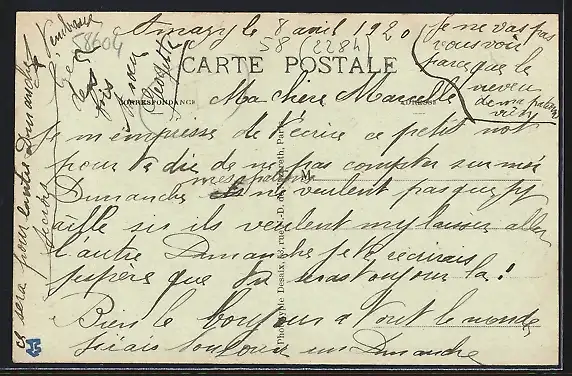 Amazy le 8 avril 1920
58604
58 (2284)
CARTE POSTALE
CORRESPONDANCE
ADRESSE
Je ne vas pas
vous voir
parce que le
neveu
de ma patronne
vien
Ma chère Marcelle
Je m'empresse de t'écrire ce petit mot
pour te die de ne pas compter sur moi
Dimanche mes patrons ne veulent pas que j'y
aille sis ils veulent my laisser aller
l'autre Dimanche je t'écrirais
j'espère que tu seras toujour la!
Bien le bonjour a tout le monde
j'irais toujour un Dimanche
M
Photoypie Desaix, rue N.-D. de Nazareth, Paris
ce sera pour l'autre Dimanche